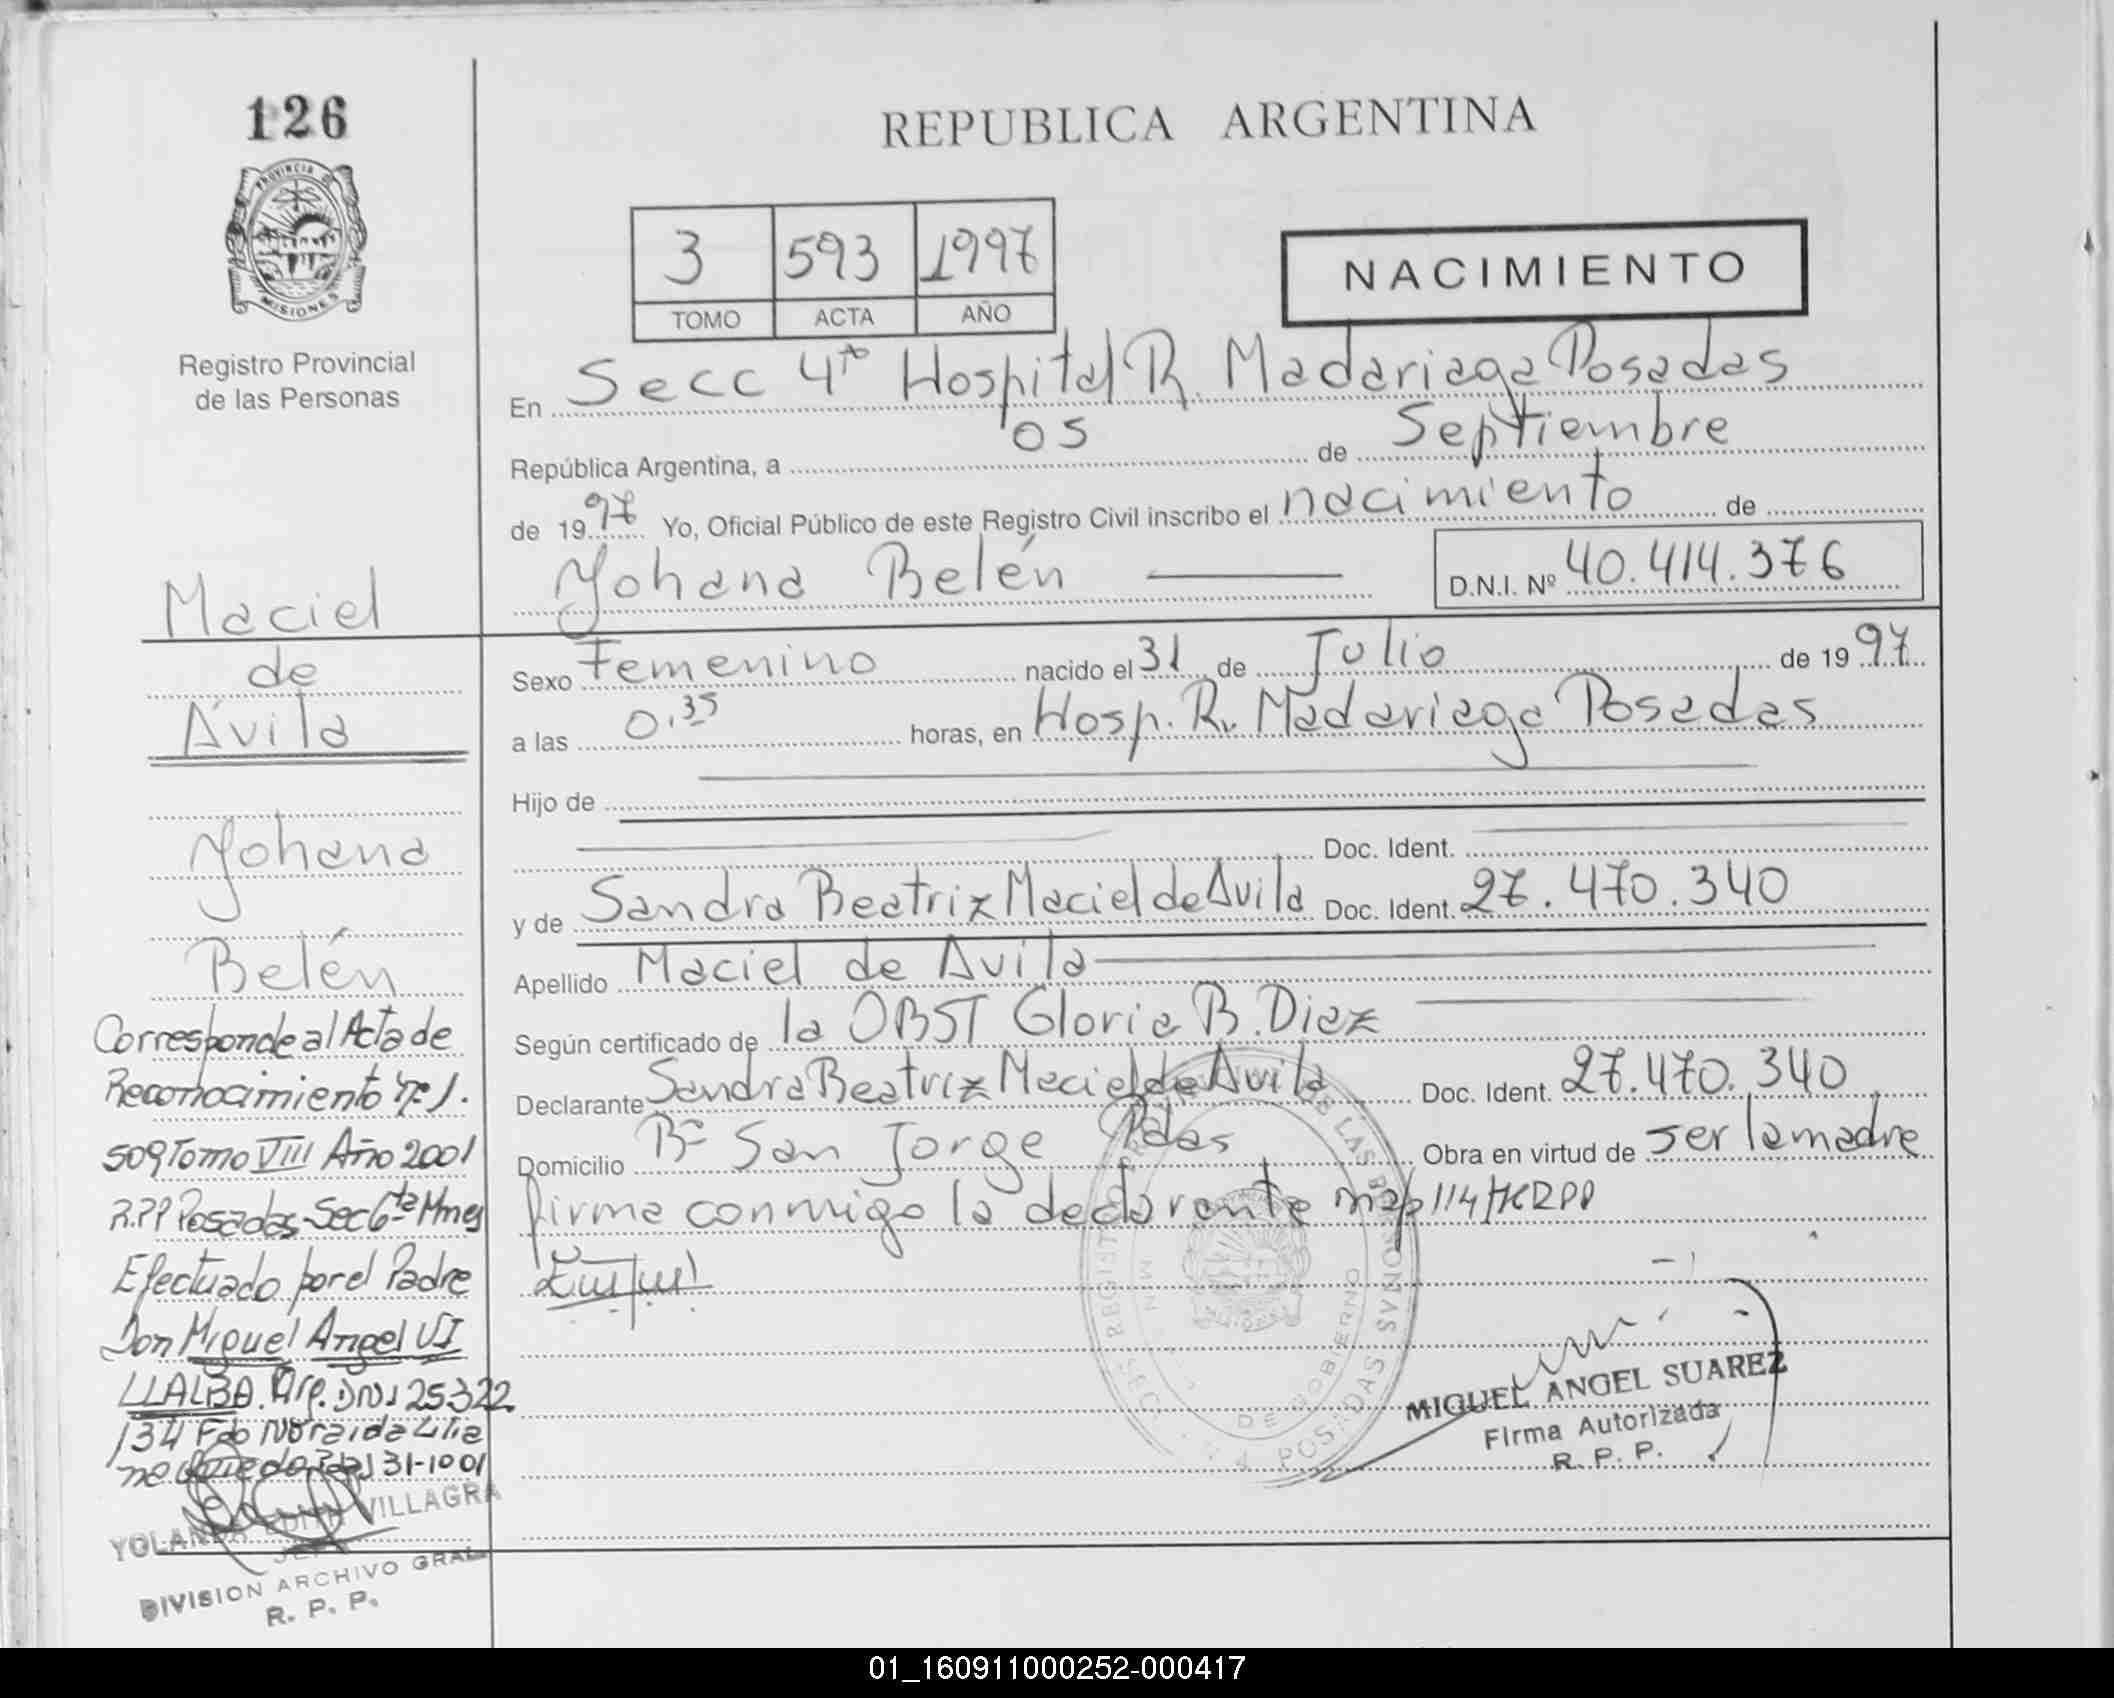 126
PROVINCIA DE
MISIONES
Registro Provincial
de las Personas
REPUBLICA ARGENTINA
3 593 1997
TOMO ACTA AÑO
NACIMIENTO
En Secc 4ta Hospital R. Madariaga Posadas
República Argentina, a 05 de Septiembre
de 1997 Yo, Oficial Público de este Registro Civil inscribo el nacimiento de
Yohana Belén D.N.I. Nº 40.414.376
Sexo Femenino nacido el 31 de Julio de 1997
a las 0,35 horas, en Hosp. R. Madariaga Posadas
Hijo de
Doc. Ident.
y de Sandra Beatriz Maciel de Avila Doc. Ident. 27.470.340
Apellido Maciel de Avila
Según certificado de la OBST Gloria B. Diaz
Declarante Sandra Beatriz Maciel de Avila Doc. Ident. 27.470.340
Domicilio Bº San Jorge Pdas Obra en virtud de ser la madre
firma conmigo la declarante
MIGUEL ANGEL SUAREZ
Firma Autorizada
R. P. P.
Maciel
de
Avila
Yohana
Belén
Corresponde al Acta de
Reconocimiento Nº 1.
509 Tomo VIII Año 2001
R.P.P Posadas Sec 6ta Mnes
Efectuado por el Padre
Don Miguel Angel VI
LLALBA. Arg. DNI 25322
134 Fdo
31-10 01
YOLANDA VILLAGRA
JEFA
DIVISION ARCHIVO GRAL.
R. P. P.
01_160911000252-000417